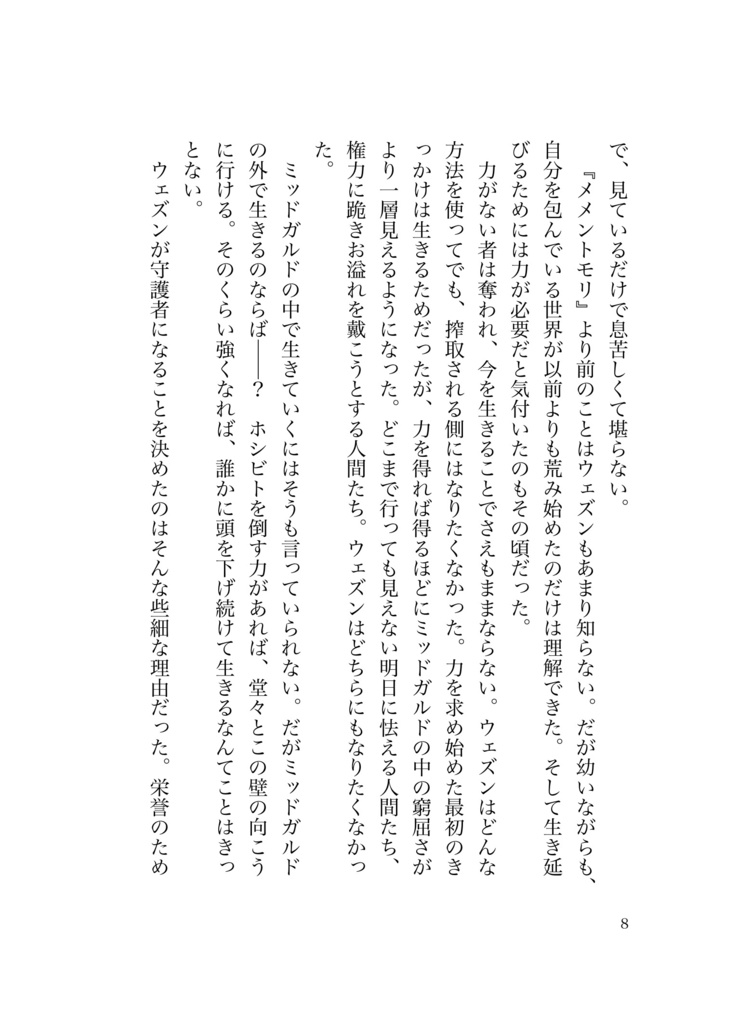 で、見ているだけで息苦しくて堪らない。
　『メメントモリ』より前のことはウェズンもあまり知らない。だが幼いながらも、
自分を包んでいる世界が以前よりも荒み始めたのだけは理解できた。そして生き延
びるためには力が必要だと気付いたのもその頃だった。
　力がない者は奪われ、今を生きることでさえもままならない。ウェズンはどんな
方法を使ってでも、搾取される側にはなりたくなかった。力を求め始めた最初のき
っかけは生きるためだったが、力を得れば得るほどにミッドガルドの中の窮屈さが
より一層見えるようになった。どこまで行っても見えない明日に怯える人間たち、
権力に跪きお溢れを戴こうとする人間たち。ウェズンはどちらにもなりたくなかっ
た。
　ミッドガルドの中で生きていくにはそうも言っていられない。だがミッドガルド
の外で生きるのならば――？　ホシビトを倒す力があれば、堂々とこの壁の向こう
に行ける。そのくらい強くなれば、誰かに頭を下げ続けて生きるなんてことはきっ
とない。
　ウェズンが守護者になることを決めたのはそんな些細な理由だった。栄誉のため
8